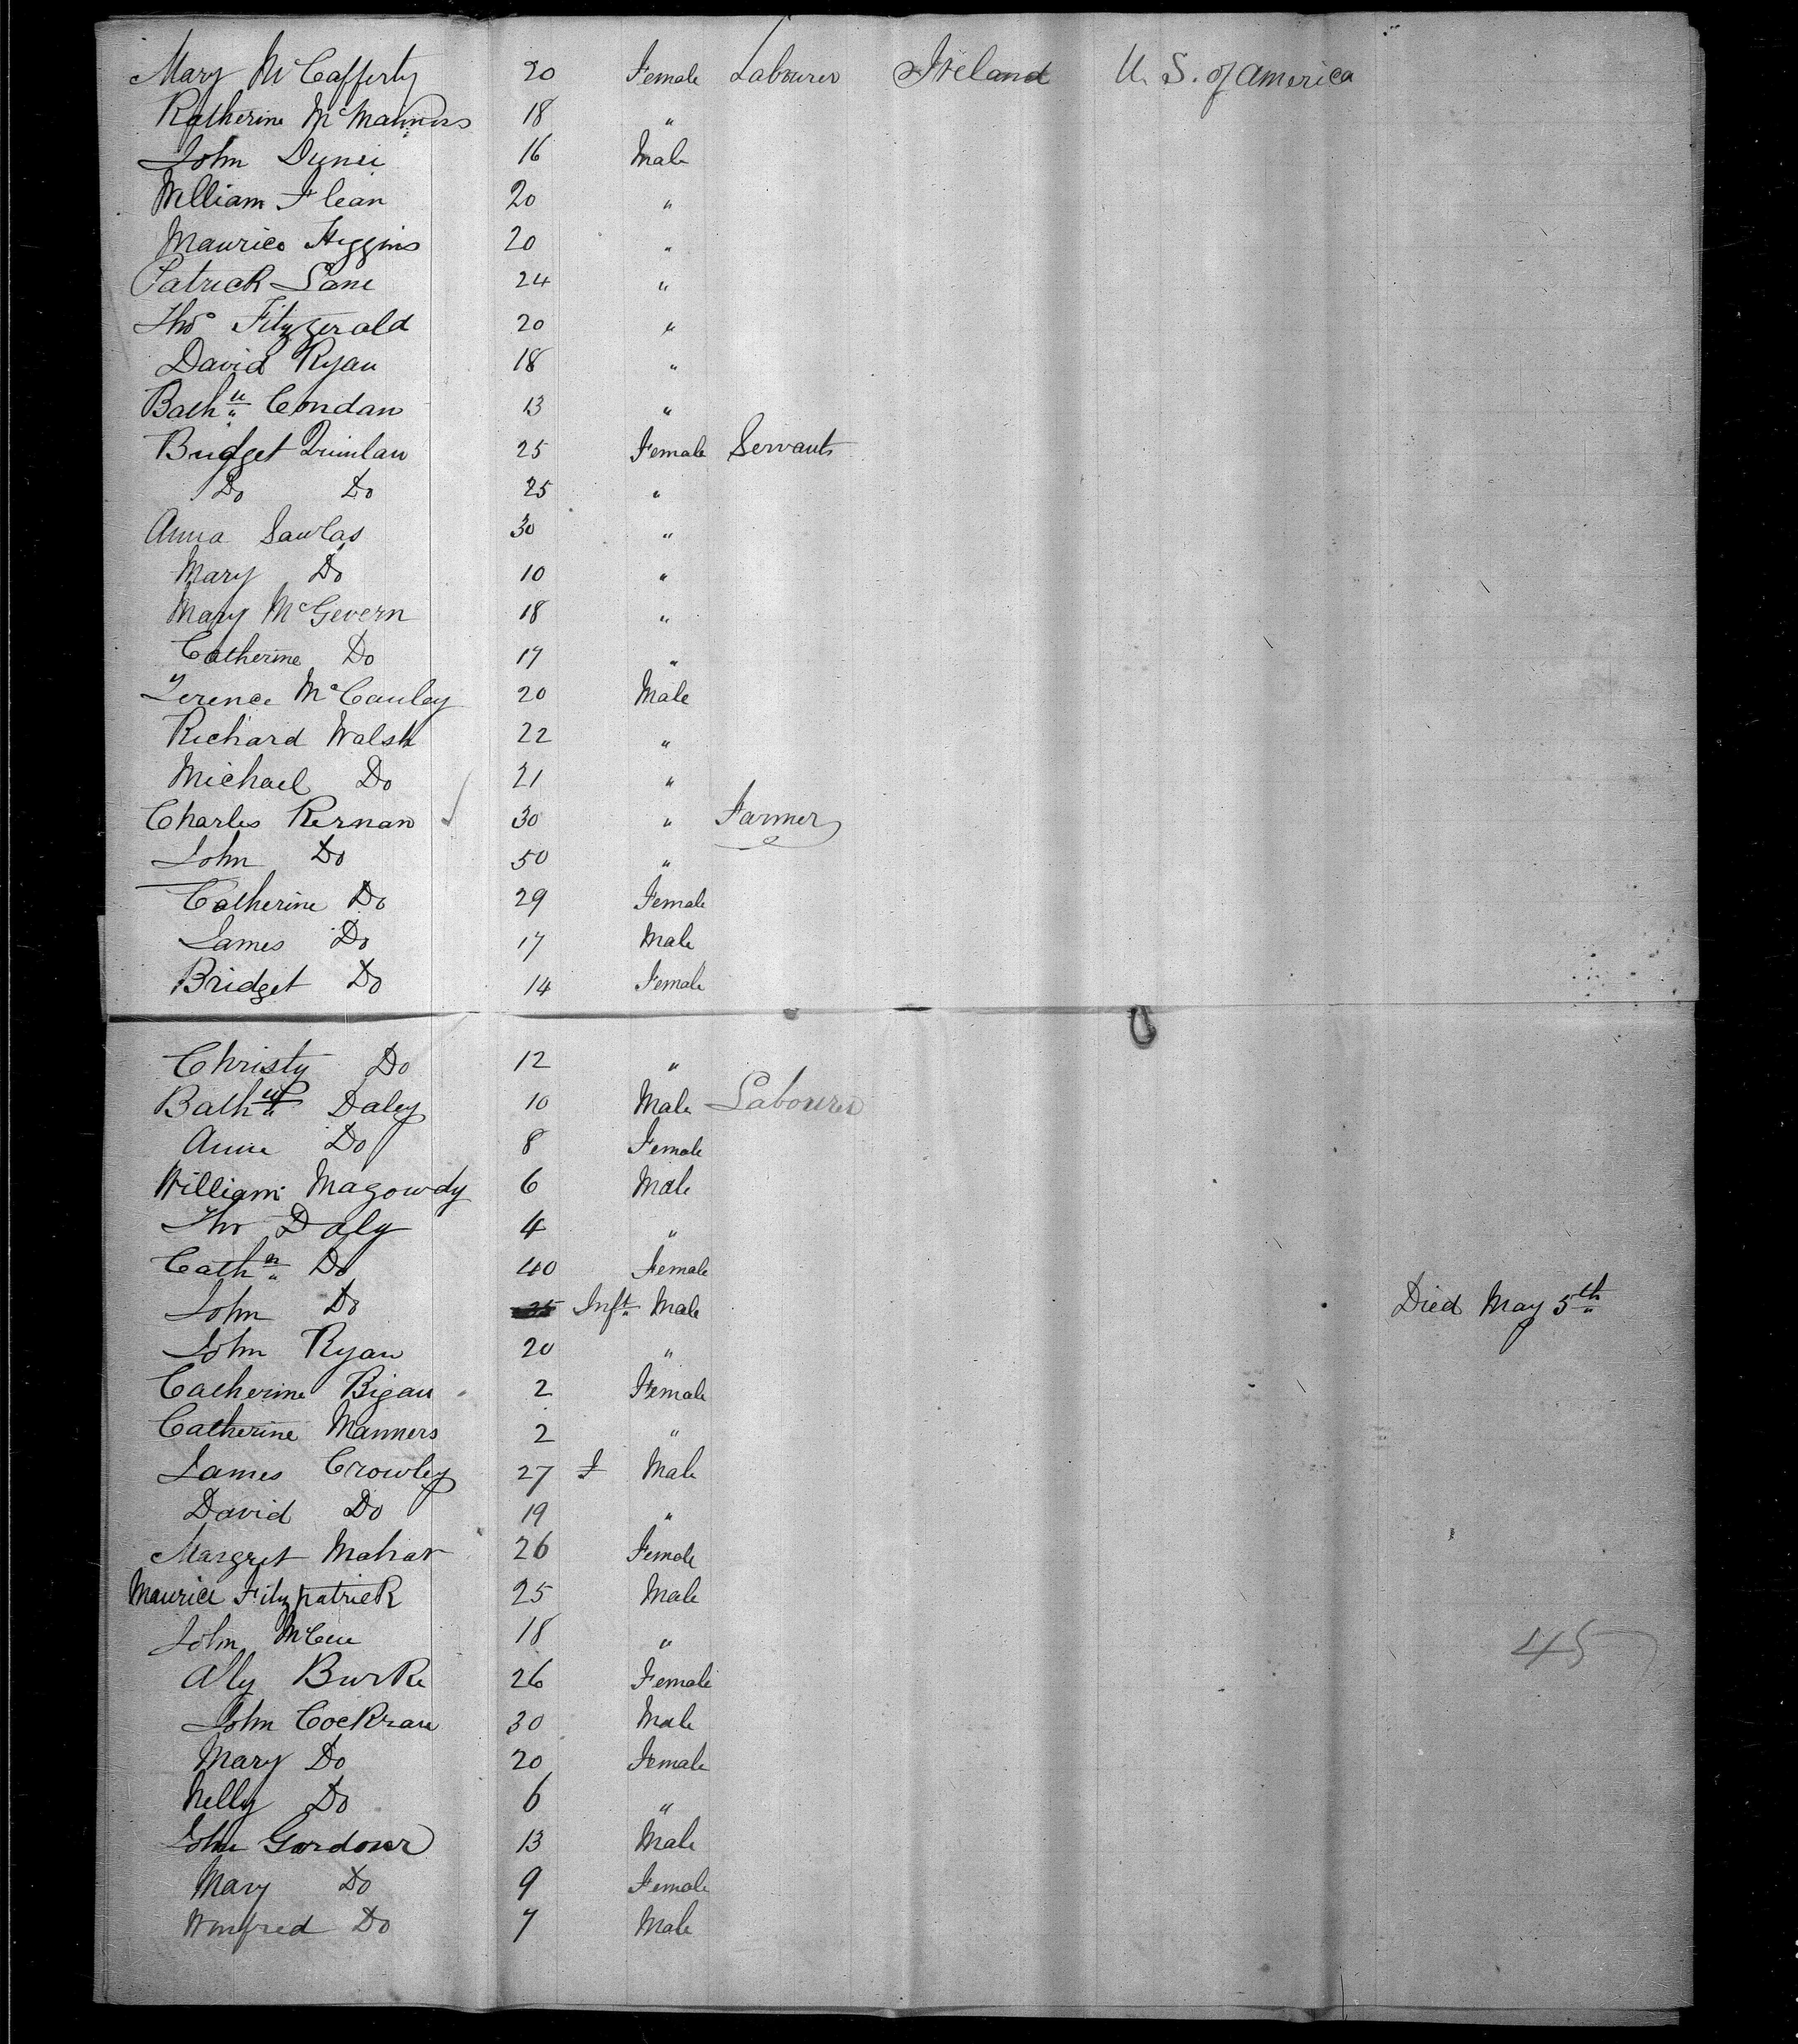 Mary McCafferty 20 Female Labourer Ireland U. S. of America
Katherine McManners 18 "
John Dynei 16 Male
William Flean 20 "
Maurice Higgins 20 "
Patrick Lane 24 "
Tho Fitzgerald 20 "
David Ryan 18 "
Bathw Condan 13 "
Bridget Quinlan 25 Female Servants
Do Do 25 "
Anna Sawlas 30 "
Mary Do 10 "
Mary McGevern 18 "
Catherine Do 17 "
Terence McCauley 20 Male
Richard Walsh 22 "
Michael Do 21 "
Charles Kernan 30 " Farmer
John Do 50 "
Catherine Do 29 Female
James Do 17 Male
Bridget Do 14 Female
Christy Do 12 "
Bathw Daley 10 Male Labourer
Anne Do 8 Female
William Magowdy 6 Male
Tho Daly 4 "
Cathn Do 40 Female
John Do Inft Male Died May 5th
John Ryan 20 "
Catherine Bigan 2 Female
Catherine Manners 2 "
James Crowley 27 Male
David Do 19 "
Margret Mahar 26 Female
Maurice Fitzpatrick 25 Male
John McCue 18 "
Ally Burke 26 Female
45
John Cockran 30 Male
Mary Do 20 Female
Nelly Do 6 "
John Gordown 13 Male
Mary Do 9 Female
Winfred Do 7 Male